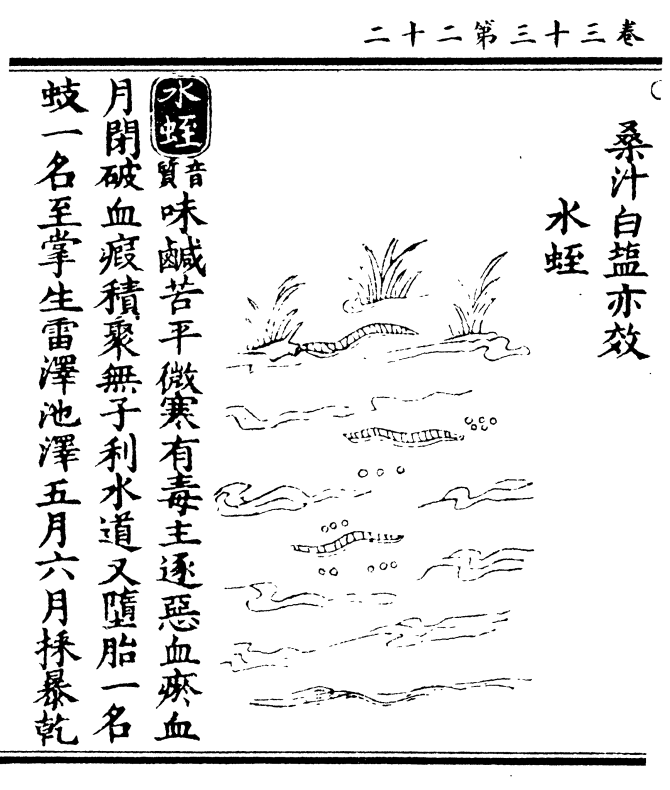 卷三十三第二十二
桑汁白塩亦效
水蛭
水蛭音質味鹹苦平微寒有毒主逐惡血瘀血
月閉破血瘕積聚無子利水道又墮胎一名
蚑一名至掌生雷澤池澤五月六月採暴乾